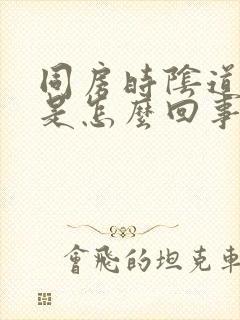 同房時陰道
是怎麼回事
會飛的坦克車